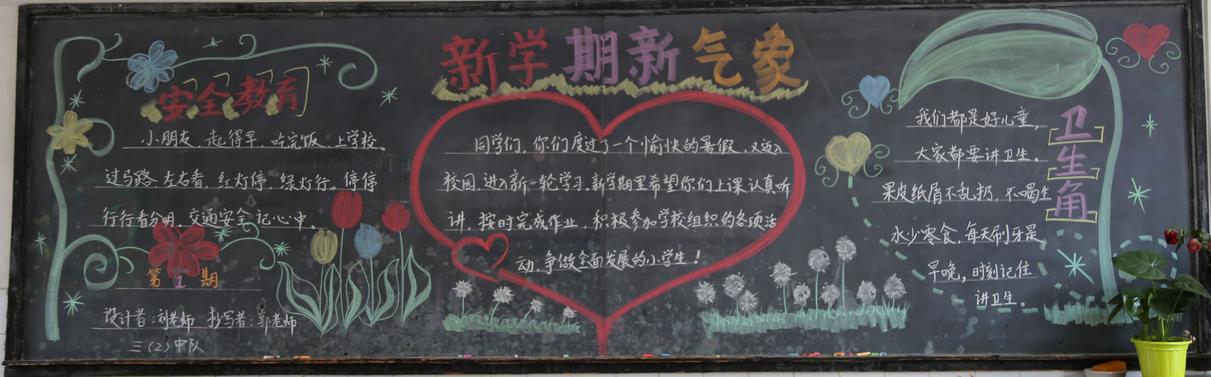 新学期新气象
安全教育
小朋友,起得早,吃完饭,上学校。
过马路,左右看,红灯停,绿灯行。停停
行行看分明,交通安全记心中。
第1期
设计者:刘老师 抄写者:郭老师
三(2)中队
同学们,你们度过了一个愉快的暑假,又迈入
校园,进入新一轮学习。新学期里希望你们上课认真听
讲,按时完成作业,积极参加学校组织的各项活
动,争做全面发展的小学生!
卫生角
我们都是好儿童,
大家都要讲卫生。
果皮纸屑不乱扔,不喝生
水少零食,每天刷牙是
早晚,时刻记住
讲卫生。